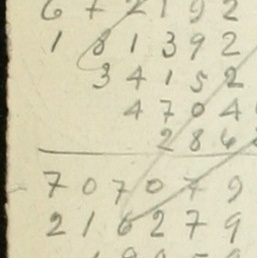 6 7 2 1 9 2
1 8 1 3 9 2
3 4 1 5 2
4 7 0 4
2 8 6
7 0 7 0 7 9
2 1 6 2 7 9